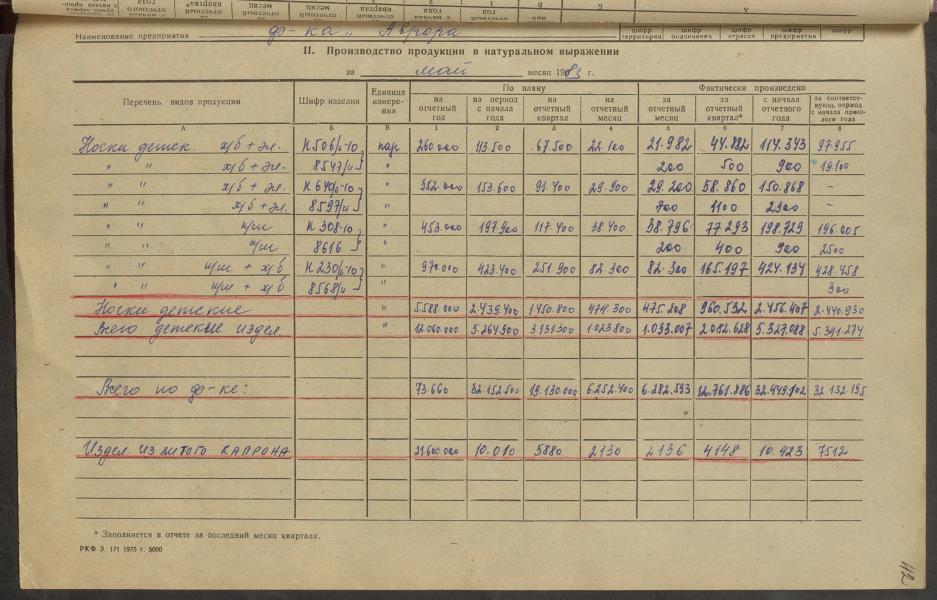 Наименование предприятия ф-ка „Аврора
шифр территории шифр шифр отрасли шифр предприятия шифр
II. Производство продукции в натуральном выражении
за май месяц 1983 г.
Перечень видов продукции Шифр изделия Единица измерения По плану Фактически произведено
на отчетный год на период с начала года на отчетный квартал на отчетный месяц за отчетный месяц за отчетный квартал* с начала отчетного года за соответствующ. период с начала прошлого года
А Б В 1 2 3 4 5 6 7 8
Носки детск. х/б + эл. пар 260.000 113.500 67.500 22.100 21.982 44.882 114.343 97.955
" " х/б + эл. 8547/и " 200 500 900 19.100
" " х/б + эл. " 352.000 153.600 91.400 29.900 29.200 58.860 150.868 –
" " х/б + эл. 8597/и " 700 1100 2900 –
" " п/ш Н 308-10 " 453.000 197.900 117.400 38.400 38.796 77.293 198.729 196.005
" " п/ш 8616 " 200 400 900 2500
" " п/ш + х/б " 970.000 423.400 251.900 82.300 82.300 165.197 424.134 428.458
" " п/ш + х/б 8568/и " 300
Носки детские " 5588.000 2.439.400 1450.800 474.300 475.208 960.532 2.456.407 2.440.930
Всего детские издел. " 12.060.000 5.264.900 3.131.300 1.023.800 1.093.007 2.082.628 5.327.088 5.341.274
Всего по ф-ке: 73.660 32.152.500 19.130.000 6.252.400 6.282.593 12.761.886 32.449.102 32.132.195
Издел. из литого КАПРОНА 21.600.000 10.010 5880 2130 2136 4148 10.423 7512
* Заполняется в отчете за последний месяц квартала.
РКФ З. 171 1975 г. 5000
112